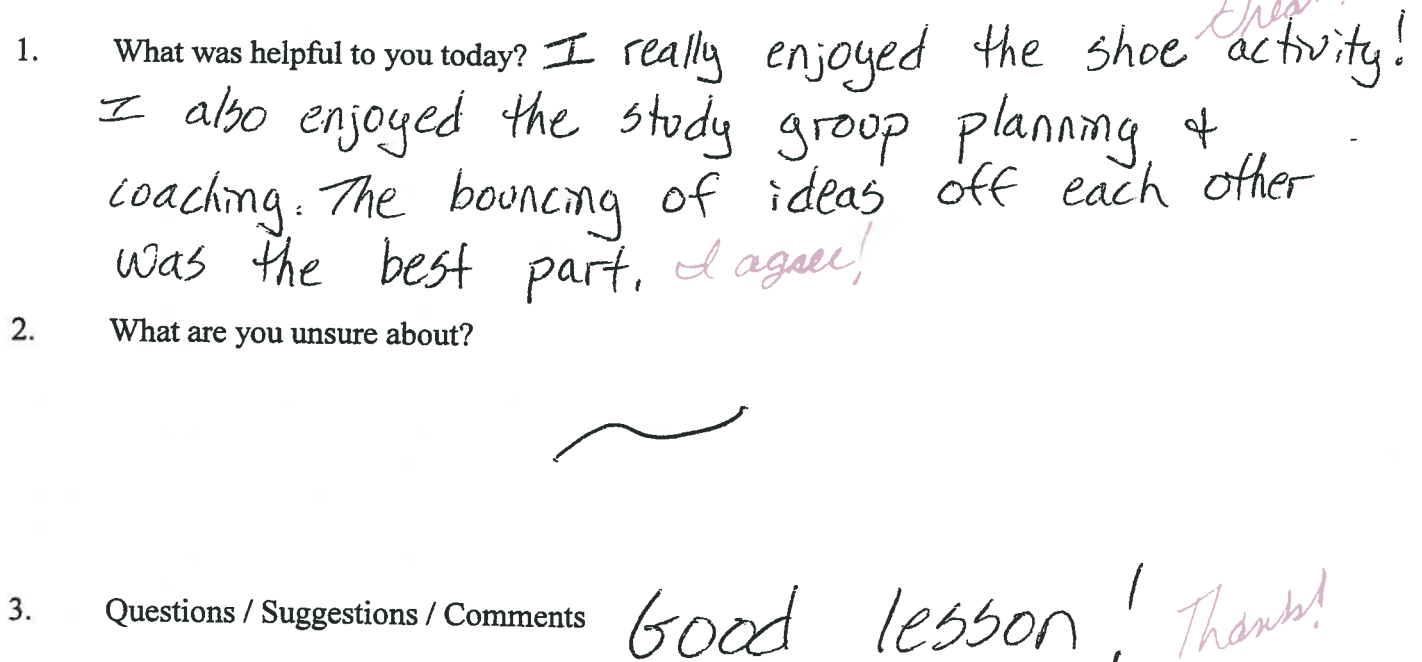 1. What was helpful to you today? I really enjoyed the shoe activity!
I also enjoyed the study group planning &
coaching. The bouncing of ideas off each other
was the best part. I agree!
2. What are you unsure about?
3. Questions / Suggestions / Comments Good lesson! Thanks!